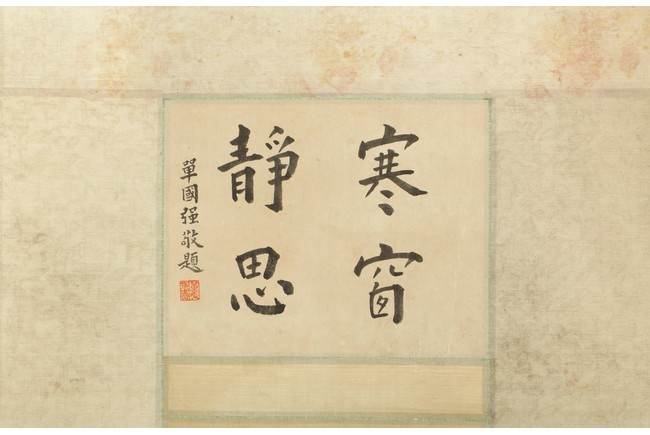 寒窗
靜思
單國强敬題